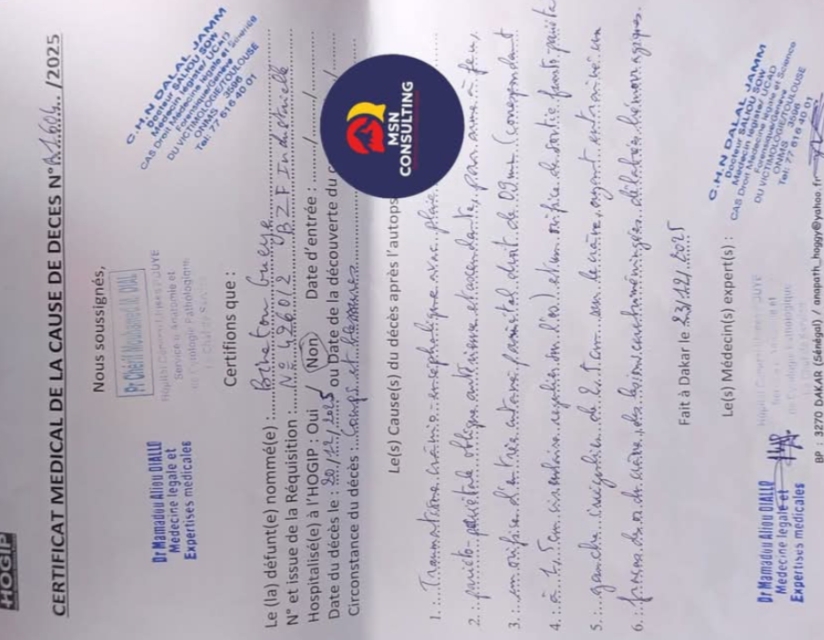 HOGIP
CERTIFICAT MEDICAL DE LA CAUSE DE DECES N° B1604 /2025
Nous soussignés,
Dr Mamadou Aliou DIALLO
Médecine légale et
Expertises médicales
Pr Chérif Mouhamed M. DIAL
Service d'Anatomie et
Pathologique
C.H.N DALAL JAMM
Docteur SALIOU SOW
Médecin légiste/ UCA
CAS Droit Médecine légale et Science
Forensiques/Genève
DU VICTIMOLOGIE/TOULOUSE
ONMS 3096
Tel: 77 616 40 01
Certifions que :
Le (la) défunt(e) nommé(e) : Gueye
N° et issue de la Réquisition : N° 4260/2 BZF Industrielle
Hospitalisé(e) à l'HOGIP : Oui / Non Date d'entrée : / /
Date du décès le : 20/12/2025 ou Date de la découverte du
Circonstance du décès : Coups et blessures
MSN
CONSULTING
Le(s) Cause(s) du décès après l'autops
1. : Traumatisme crânio-encéphalique avec plaie
2. : pariéto-pariétale oblique antérieure et ascendante, par arme à feu,
3. : un orifice d'entrée pariétal droit de 0,9 mm (correspondant
4. : à 1,5 cm circulaire régulier sur l'os) et un orifice de sortie pariéta
5. : gauche irrégulier de 2,5 cm sur le crâne, ayant entraîné un
6. : fracas du crâne, des lésions hémorragiques.
Fait à Dakar le 23/12/2025
Le(s) Médecin(s) expert(s) :
Dr Mamadou Aliou DIALLO
Médecine légale et
Expertises médicales
C.H.N DALAL JAMM
Docteur SALIOU SOW
Médecin légiste/ UCA
CAS Droit Médecine légale et Science
Forensiques/Genève
DU VICTIMOLOGIE/TOULOUSE
ONMS 3096
Tel: 77 616 40 01
BP : 3270 DAKAR (Sénégal) / anapath_hoggy@yahoo.fr